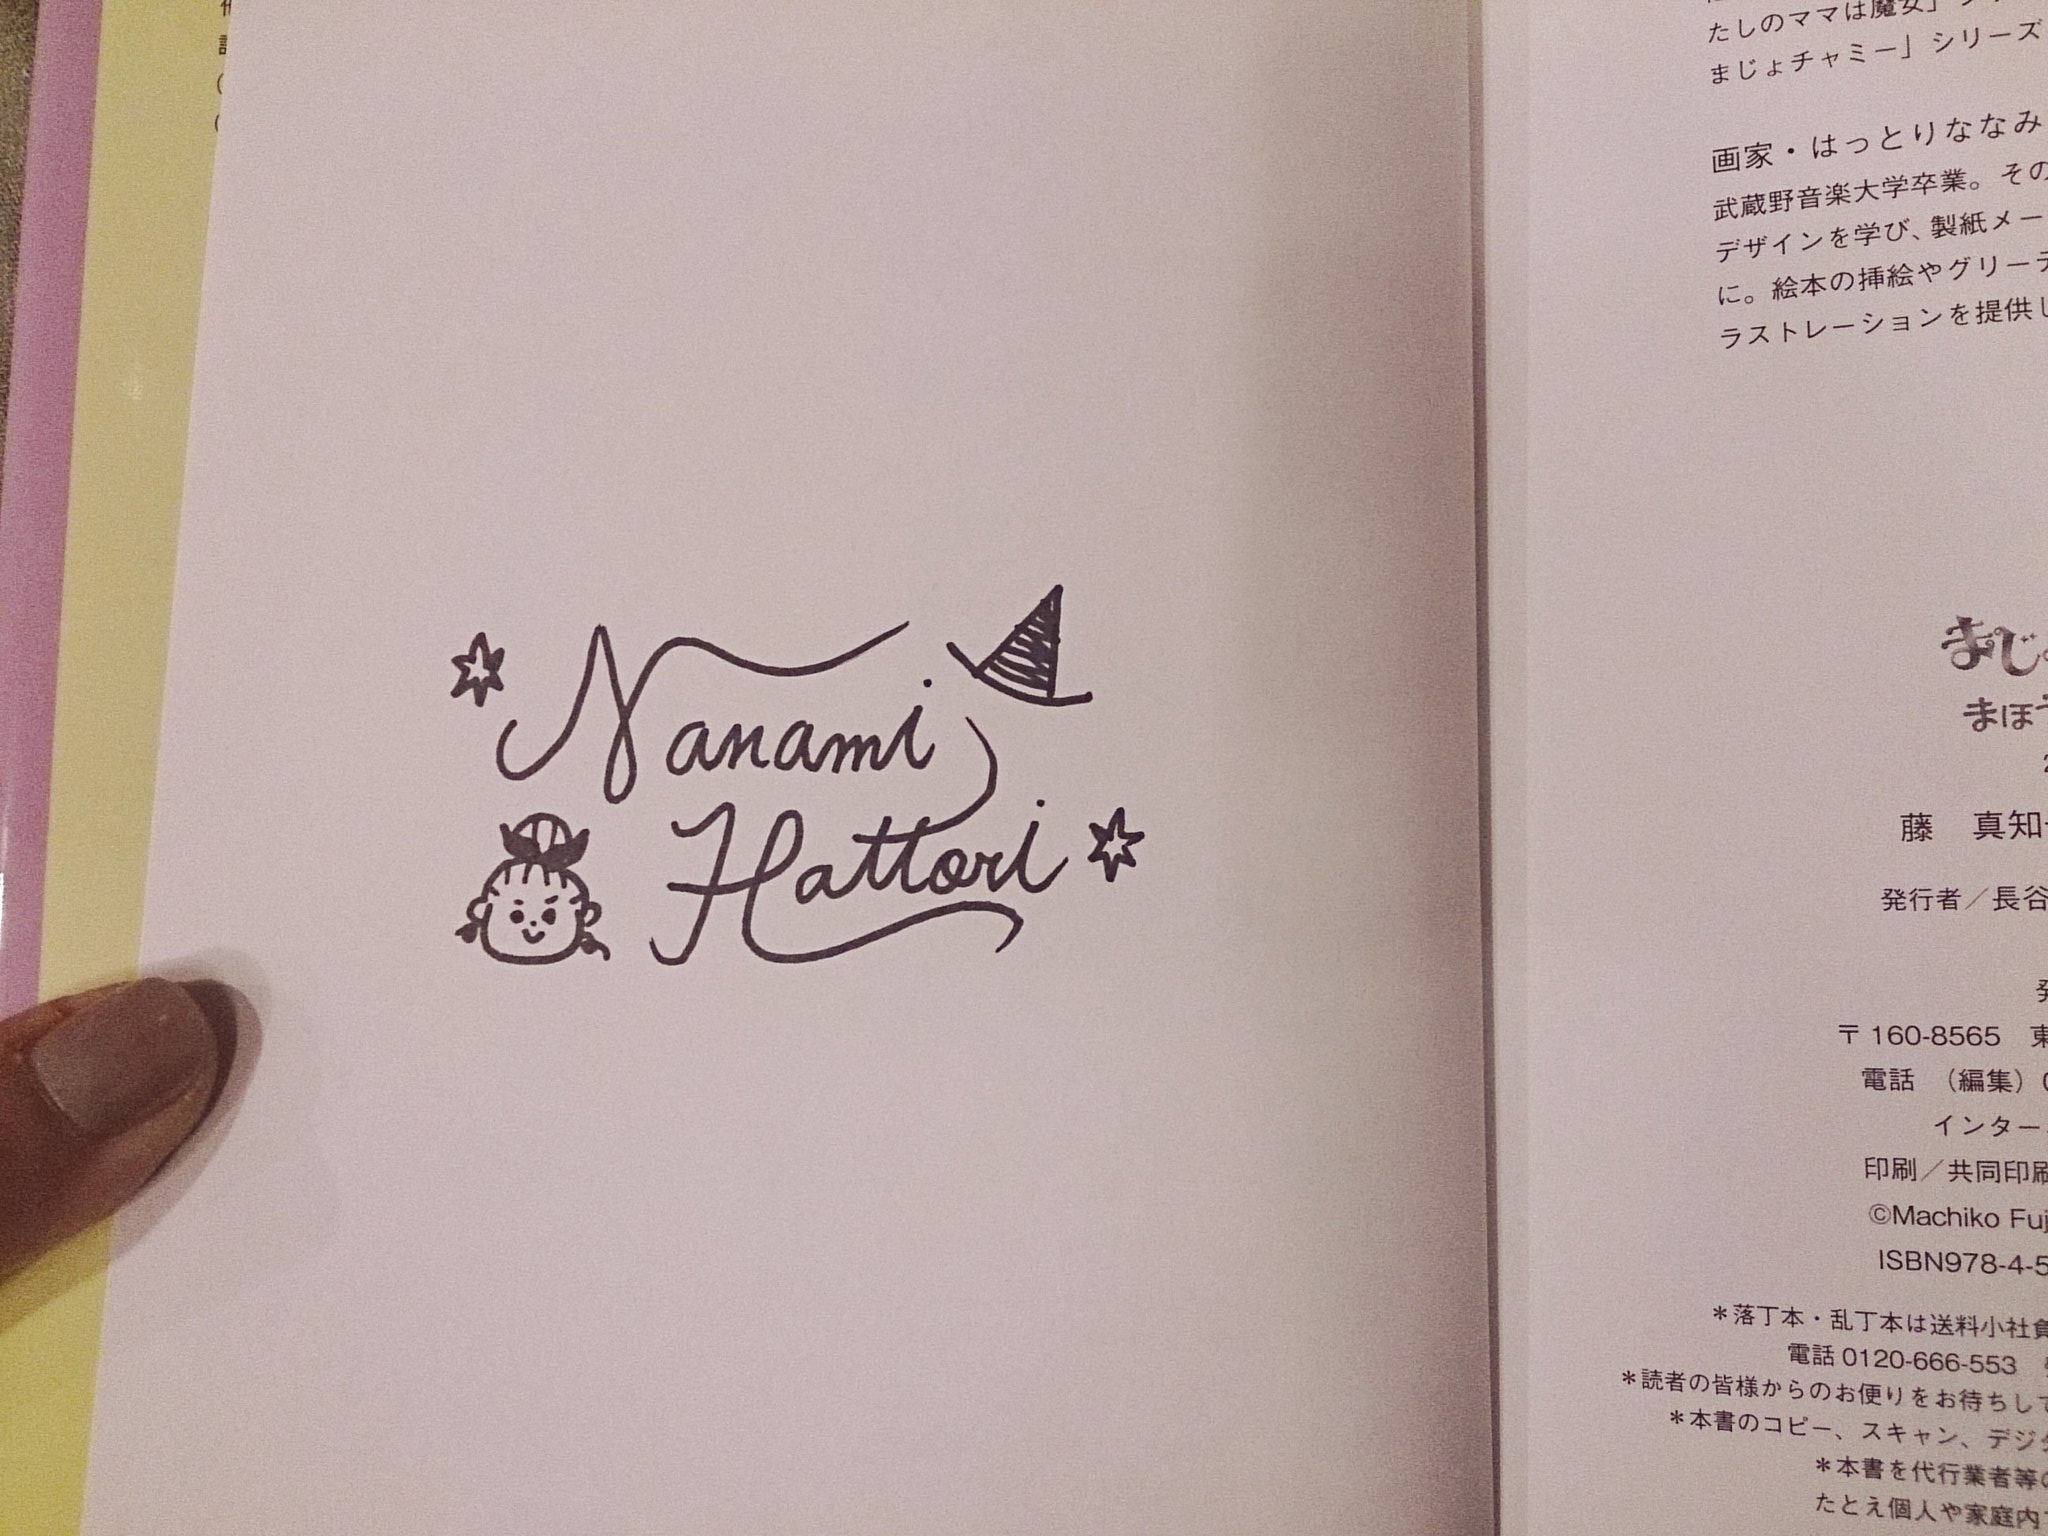 Nanami
Hattori
たしのママは魔女」シ
まじょチャミー」シリーズ
画家・はっとりななみ
武蔵野音楽大学卒業。その
デザインを学び、製紙メー
に。絵本の挿絵やグリーテ
ラストレーションを提供し
まじょ
まほう
藤 真知
発行者／長谷
〒160-8565 東
電話 (編集) 0
インター
印刷／共同印刷
©Machiko Fuj
ISBN978-4-5
＊落丁本・乱丁本は送料小社負
電話 0120-666-553
＊読者の皆様からのお便りをお待ちして
＊本書のコピー、スキャン、デジタ
＊本書を代行業者等の
たとえ個人や家庭内